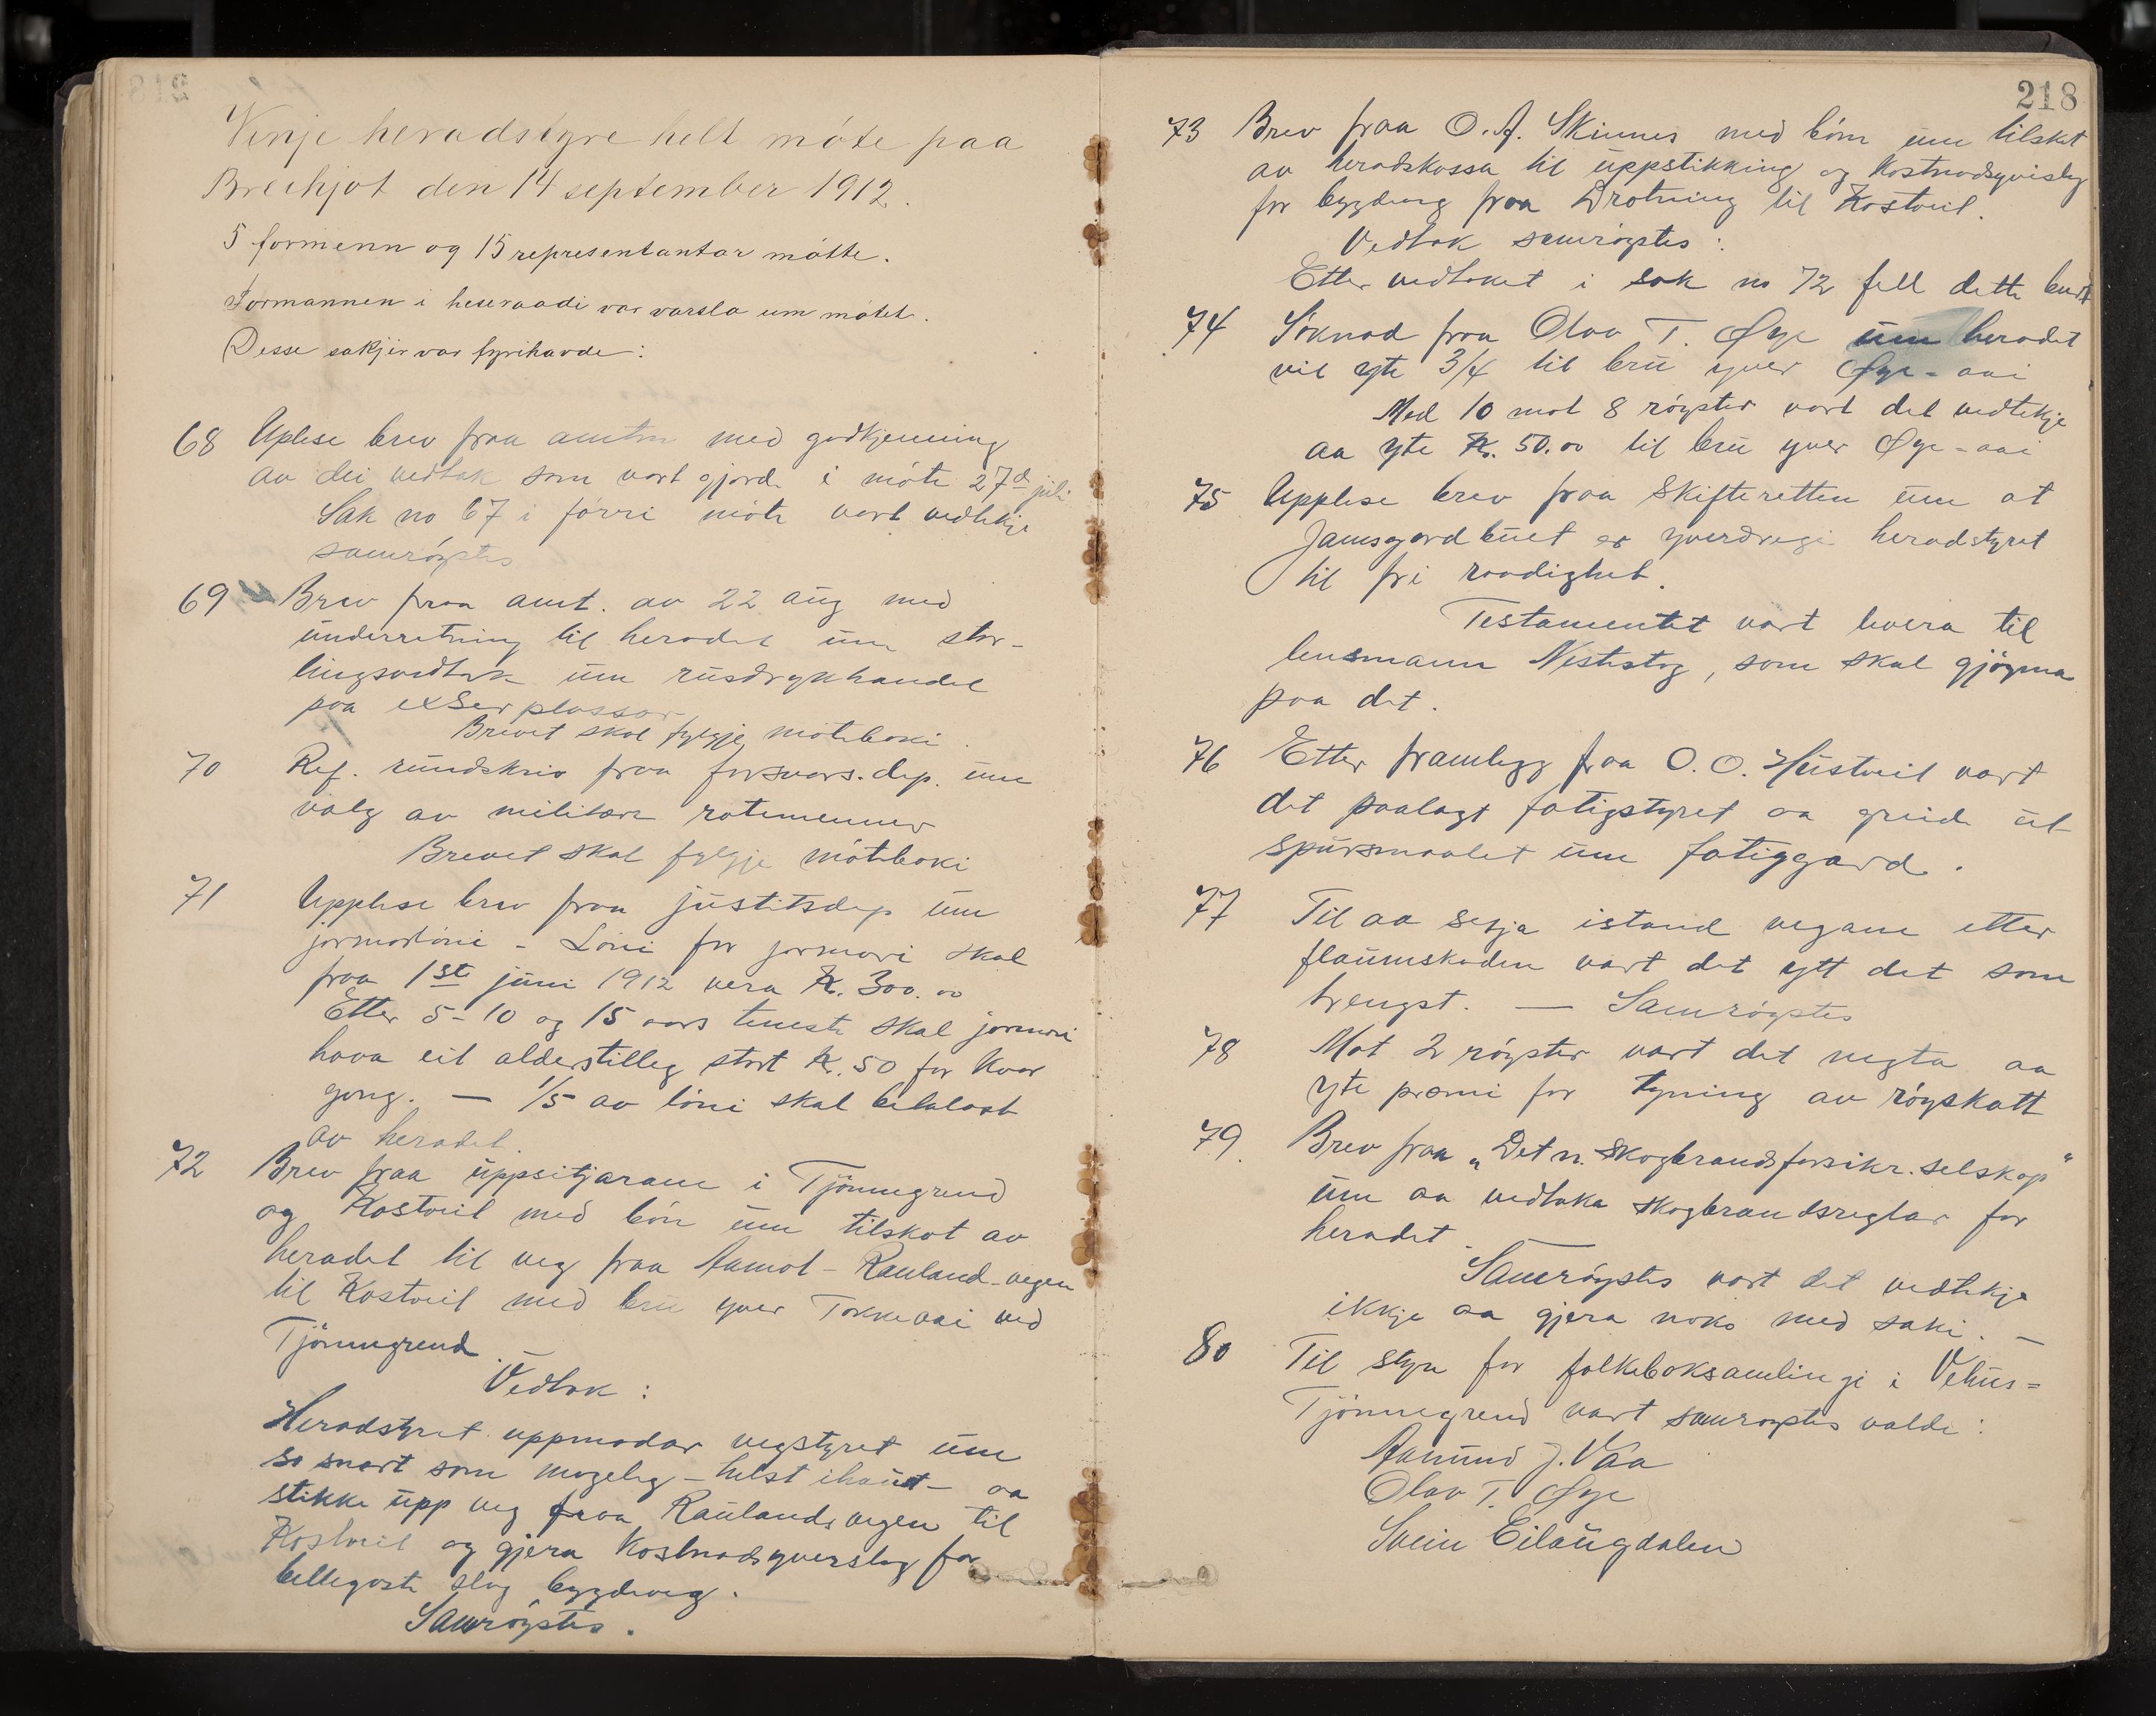 Vinje heradstyre helt møte paa
den 14 september 1912.
5 formenn og 15 representantar møtte.
Formannen i heseraadi var varsla um møtet.
Desse sakjer var fyrihavde:
68 Uplese brev fraa amtm med godkjenning
av dei vedtak som vart gjord i møte 27de juli
Sak no 67 i førri møte vart vedtekje
samrøystes
69 Brev fraa amt. av 22 aug med
underretning til heradet um stor-
tingsvedtak um rusdrykhandel
paa exserplassar
Brevet skal fylgje møteboki.
70 Ref. rundskriv fraa forsvars.dep. um
valg av militære rotemenner
Brevet skal fylgje møteboki
71 Upplese brev fraa justitsdep um
jormorløni - Løni for jormori skal
fraa 1ste juni 1912 vera Kr. 300.00
Etter 5-10 og 15 aars teneste skal jormori
hava eit alderstillegg stort kr. 50 for kvar
gong. — 1/5 av løni skal betalast
av heradet.
72 Brev fraa uppsitjarane i Tjønnegrend
og Kostveit med bøn um tilskot av
heradet til veg fraa Aamot-Rauland-vegen
til Kostveit med bru yver Tokkeaai ved
Tjønnegrend.
Vedtak:
Heradstyret uppmodar vegstyret um
so snart som mogeleg - helst ihaust - aa
stikke upp veg fraa Raulandsvegen til
Kostveit og gjera kostnadsyverslag for
billegaste slag bygdeveg.
Samrøystes.
218
73 Brev fraa O. A. Skinnes med bøn um tilskot
av heradskassa til uppstikking og kostnadsyvislag
for bygdeveg fraa Drotning til Kostveit.
Vedtak samrøystes:
Etter vedtaket i sak no 72 fell dette burt
74 Søknad fraa Olav T. Øye um heradet
vil yte 3/4 til bru yver Øye-aai
Med 10 mot 8 røyster vart det vedtekje
aa yte Kr. 50.00 til bru yver Øye-aai
75 Upplese brev fraa Skifteretten um at
Jamsgardbuet er yverdregi heradstyret
til fri raadighet.
Testamentet vart levera til
lensmann Nestestog, som skal gjøyma
paa det.
76 Etter framlegg fraa O. O. Hustveit vart
det paalagt fatigstyret aa greide ut
spursmaalet um fatiggard.
77 Til aa sesja istand vegane etter
flaumskaden vart det ytt det som
trengst. — Samrøystes
78 Mot 2 røyster vart det negta aa
yte præmi for tyning av røyskatt
79. Brev fraa "Det n. skogbrandsforsikr. selskap"
um aa vedtaka skogbrandsreglar for
heradet.
Samrøystes vart det vedtekje
ikkje aa gjera noko med saki. —
80 Til styre for folkeboksamlingi i Vehus=
Tjønnegrend vart samrøystes valde:
Aamund J. Vaa
Olav T. Øye
Svein Eilaugdalen